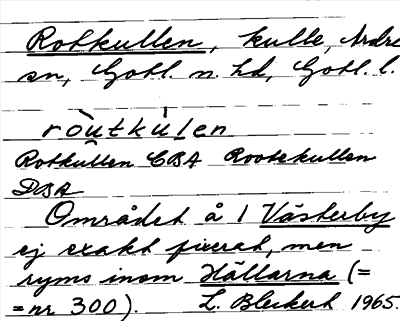 Rotkullen, kulle, Ardre
sn, Gotl. n. hd, Gotl. l.
ròutkùlen
Rotkullen EBA Rootekullen
DBA
Området å 1 Västerby
ej exakt fixerat, men
ryms inom Hällarna (=
=nr 300). L. Bleckert 1965.